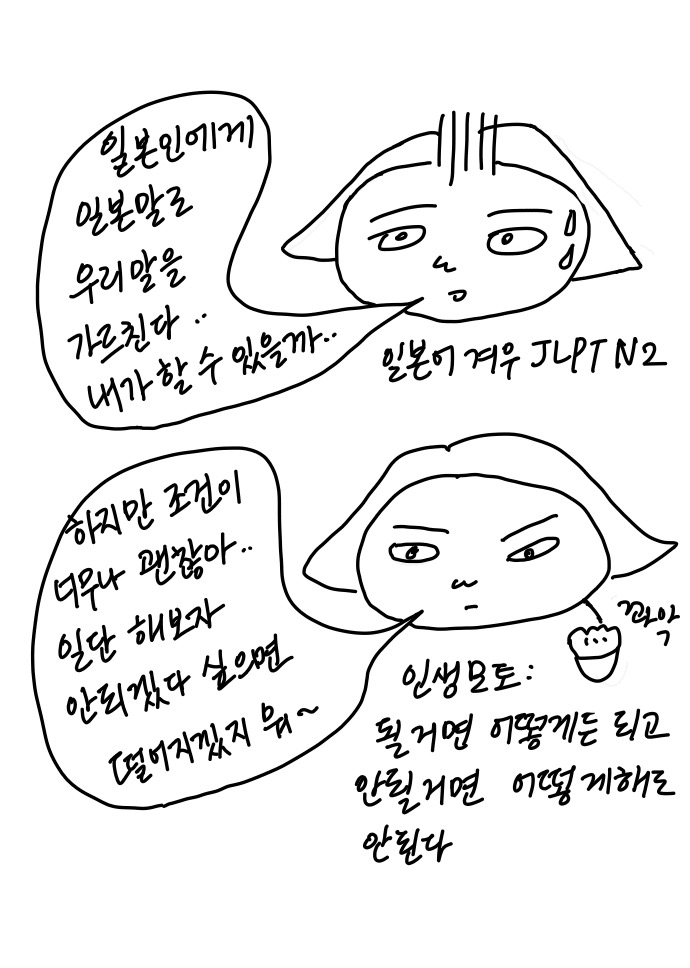 일본인에게
일본말로
우리말을
가르친다..
내가 할 수 있을까..
일본어 겨우 JLPT N2
하지만 조건이
너무나 괜찮아..
일단 해보자
안되겠다 싶으면
떨어지겠지 뭐~
꽈악
인생모토:
될거면 어떻게든 되고
안될거면 어떻게해도
안된다